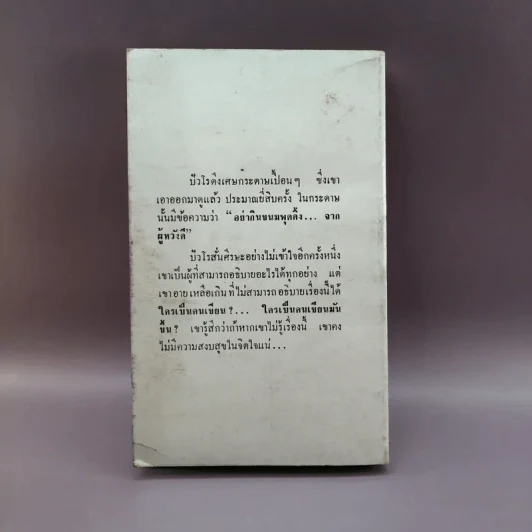 ปัวโรดึงเศษกระดาษเปื้อนๆ ซึ่งเขา
เอาออกมาดูแล้ว ประมาณยี่สิบครั้ง ในกระดาษ
นั้นมีข้อความว่า “อย่ากินขนมพุดดิ้ง... จาก
ผู้หวังดี”
ปัวโรสั่นศีรษะอย่างไม่เข้าใจอีกครั้งหนึ่ง
เขาเป็นผู้ที่สามารถอธิบายอะไรได้ทุกอย่าง แต่
เขาอายเหลือเกินที่ไม่สามารถอธิบายเรื่องนี้ได้
ใครเป็นคนเขียน?... ใครเป็นคนเขียนมัน
ขึ้น? เขารู้สึกว่าถ้าหากเขาไม่รู้เรื่องนี้ เขาคง
ไม่มีความสงบสุขในจิตใจแน่...